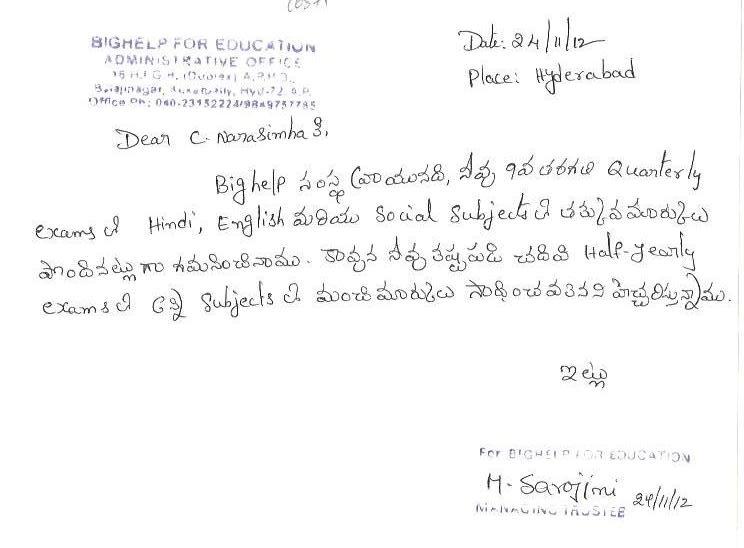 BIGHELP FOR EDUCATION
ADMINISTRATIVE OFFICE
Office Ph: 040-23152224/9849757785
Date: 24/11/12
Place: Hyderabad
Dear C. Narasimha
Bighelp సంస్థ వ్రాయునది, నీవు 9వ తరగతి Quarterly
exams లో Hindi, English మరియు Social Subjects లో తక్కువ మార్కులు
పొందినట్లుగా గమనించినాము. కావున నీవు కష్టపడి చదివి Half-yearly
exams లో అన్ని Subjects లో మంచి మార్కులు సాధించవలెనని హెచ్చరిస్తున్నాము.
ఇట్లు
For BIGHELP FOR EDUCATION
M. Sarojini 24/11/12
MANAGING TRUSTEE